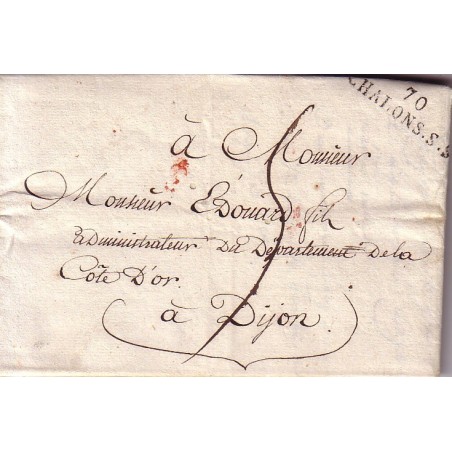 70
CHALONS.S.S
à Monsieur
Monsieur Edouard fils
administrateur Du Département De la
Côte D'or.
à Dijon.
5